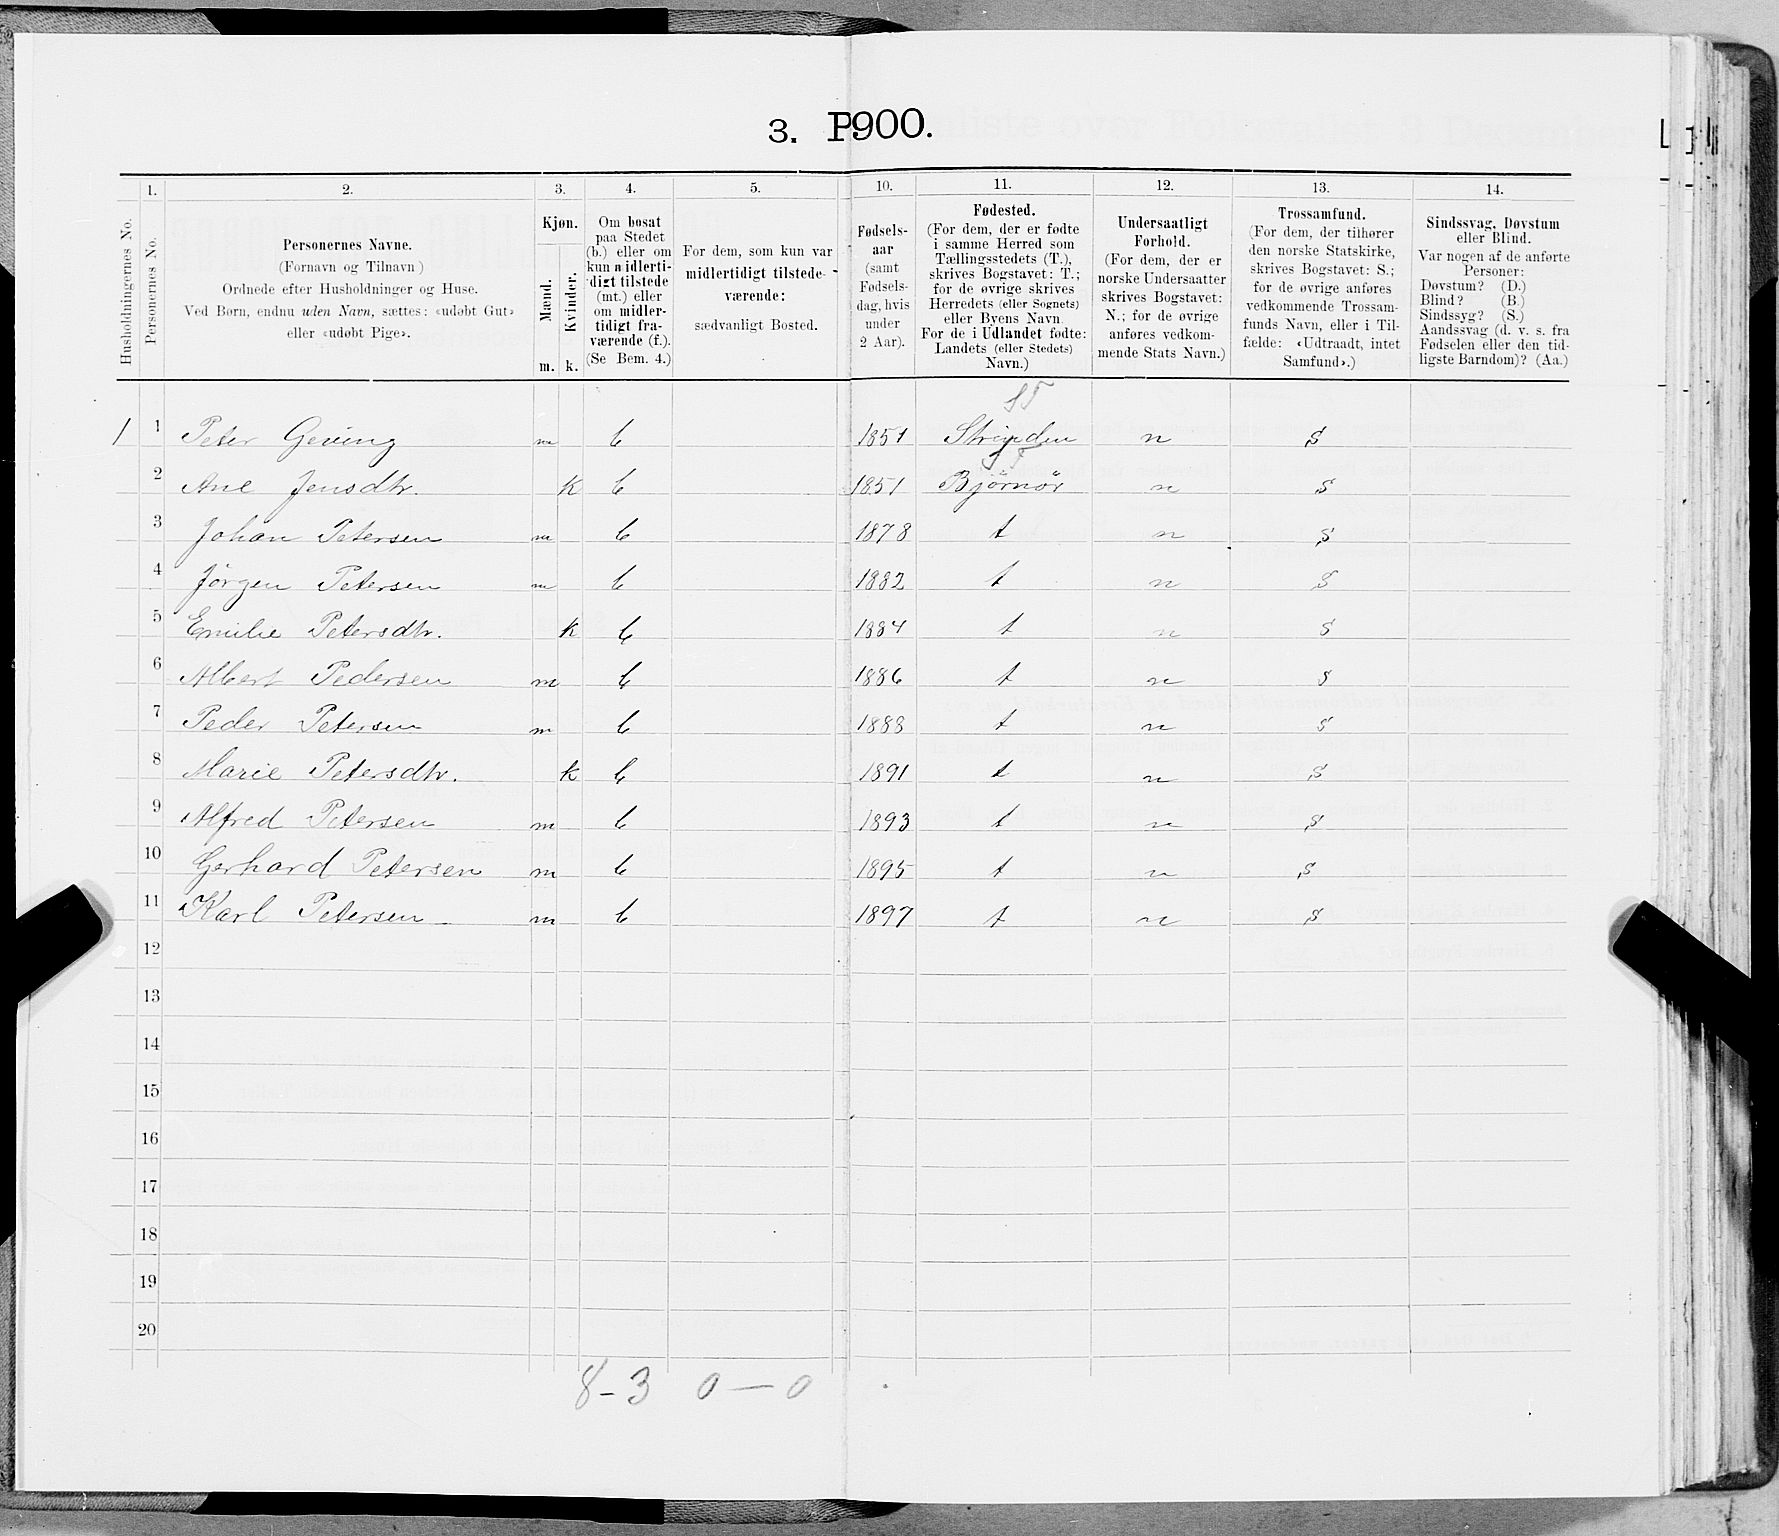 3. P.900.
1. 2. 3. 4. 5. 10. 11. 12. 13. 14.
Husholdningernes No.
Personernes No.
Personernes Navne.
(Fornavn og Tilnavn)
Ordnede efter Husholdninger og Huse.
Ved Børn, endnu uden Navn, sættes: «udøbt Gut»
eller «udøbt Pige».
Kjøn.
Mænd.
Kvinder.
m. k.
Om bosat
paa Stedet
(b.) eller om
kun midlerti-
digt tilstede
(mt.) eller
om midler-
tidigt fra-
værende (f.).
(Se Bem. 4.)
For dem, som kun var
midlertidigt tilstede-
værende:
sædvanligt Bosted.
Fødsels-
aar
(samt
Fødsels-
dag, hvis
under
2 Aar).
Fødested.
(For dem, der er fødte
i samme Herred som
Tællingsstedets (T.),
skrives Bogstavet: T.;
for de øvrige skrives
Herredets (eller Sognets)
eller Byens Navn
For de i Udlandet fødte:
Landets (eller Stedets)
Navn.)
Undersaatligt
Forhold.
(For dem, der er
norske Undersaatter
skrives Bogstavet:
N.; for de øvrige
anføres vedkom-
mende Stats Navn.)
Trossamfund.
(For dem, der tilhører
den norske Statskirke,
skrives Bogstavet: S.;
for de øvrige anføres
vedkommende Trossam-
funds Navn, eller i Til-
fælde: «Udtraadt, intet
Samfund».)
Sindssvag, Døvstum
eller Blind.
Var nogen af de anførte
Personer:
Døvstum? (D.)
Blind? (B.)
Sindssyg? (S.)
Aandssvag (d. v. s. fra
Fødselen eller den tid-
ligste Barndom)? (Aa.)
ST
1 1 Peter Geving m b 1851 Strinden n S
ST
2 Ane Jensdtr. k b 1851 Bjørnør n S
3 Johan Petersen m b 1878 t n S
4 Jörgen Petersen m b 1882 t n S
5 Emilie Petersdtr. k b 1884 t n S
6 Albert Pedersen m b 1886 t n S
7 Peder Petersen m b 1888 t n S
8 Marie Petersdtr. k b 1891 t n S
9 Alfred Petersen m b 1893 t n S
10 Gerhard Petersen m b 1895 t n S
11 Karl Petersen m b 1897 t n S
12
13
14
15
16
17
18
19
20
8-3 0-0